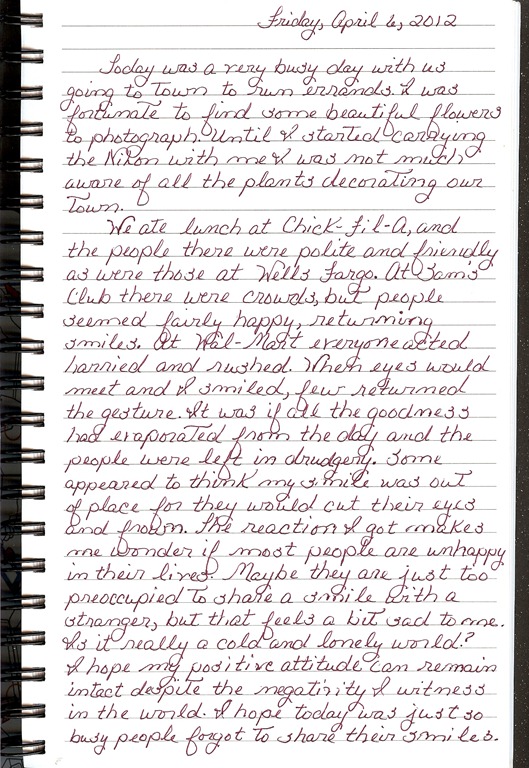 Friday, April 6, 2012
Today was a very busy day with us
going to town to run errands. I was
fortunate to find some beautiful flowers
to photograph. Until I started carrying
the Nikon with me I was not much
aware of all the plants decorating our
town.
We ate lunch at Chick-fil-A, and
the people there were polite and friendly
as were those at Wells Fargo. At Sam's
Club there were crowds, but people
seemed fairly happy, returning
smiles. At Wal-Mart everyone acted
harried and rushed. When eyes would
meet and I smiled, few returned
the gesture. It was if all the goodness
had evaporated from the day and the
people were left in drudgery. Some
appeared to think my smile was out
of place for they would cut their eyes
and frown. The reaction I got makes
me wonder if most people are unhappy
in their lives. Maybe they are just too
preoccupied to share a smile with a
stranger, but that feels a bit sad to me.
Is it really a cold and lonely world?
I hope my positive attitude can remain
intact despite the negativity I witness
in the world. I hope today was just so
busy people forgot to share their smiles.